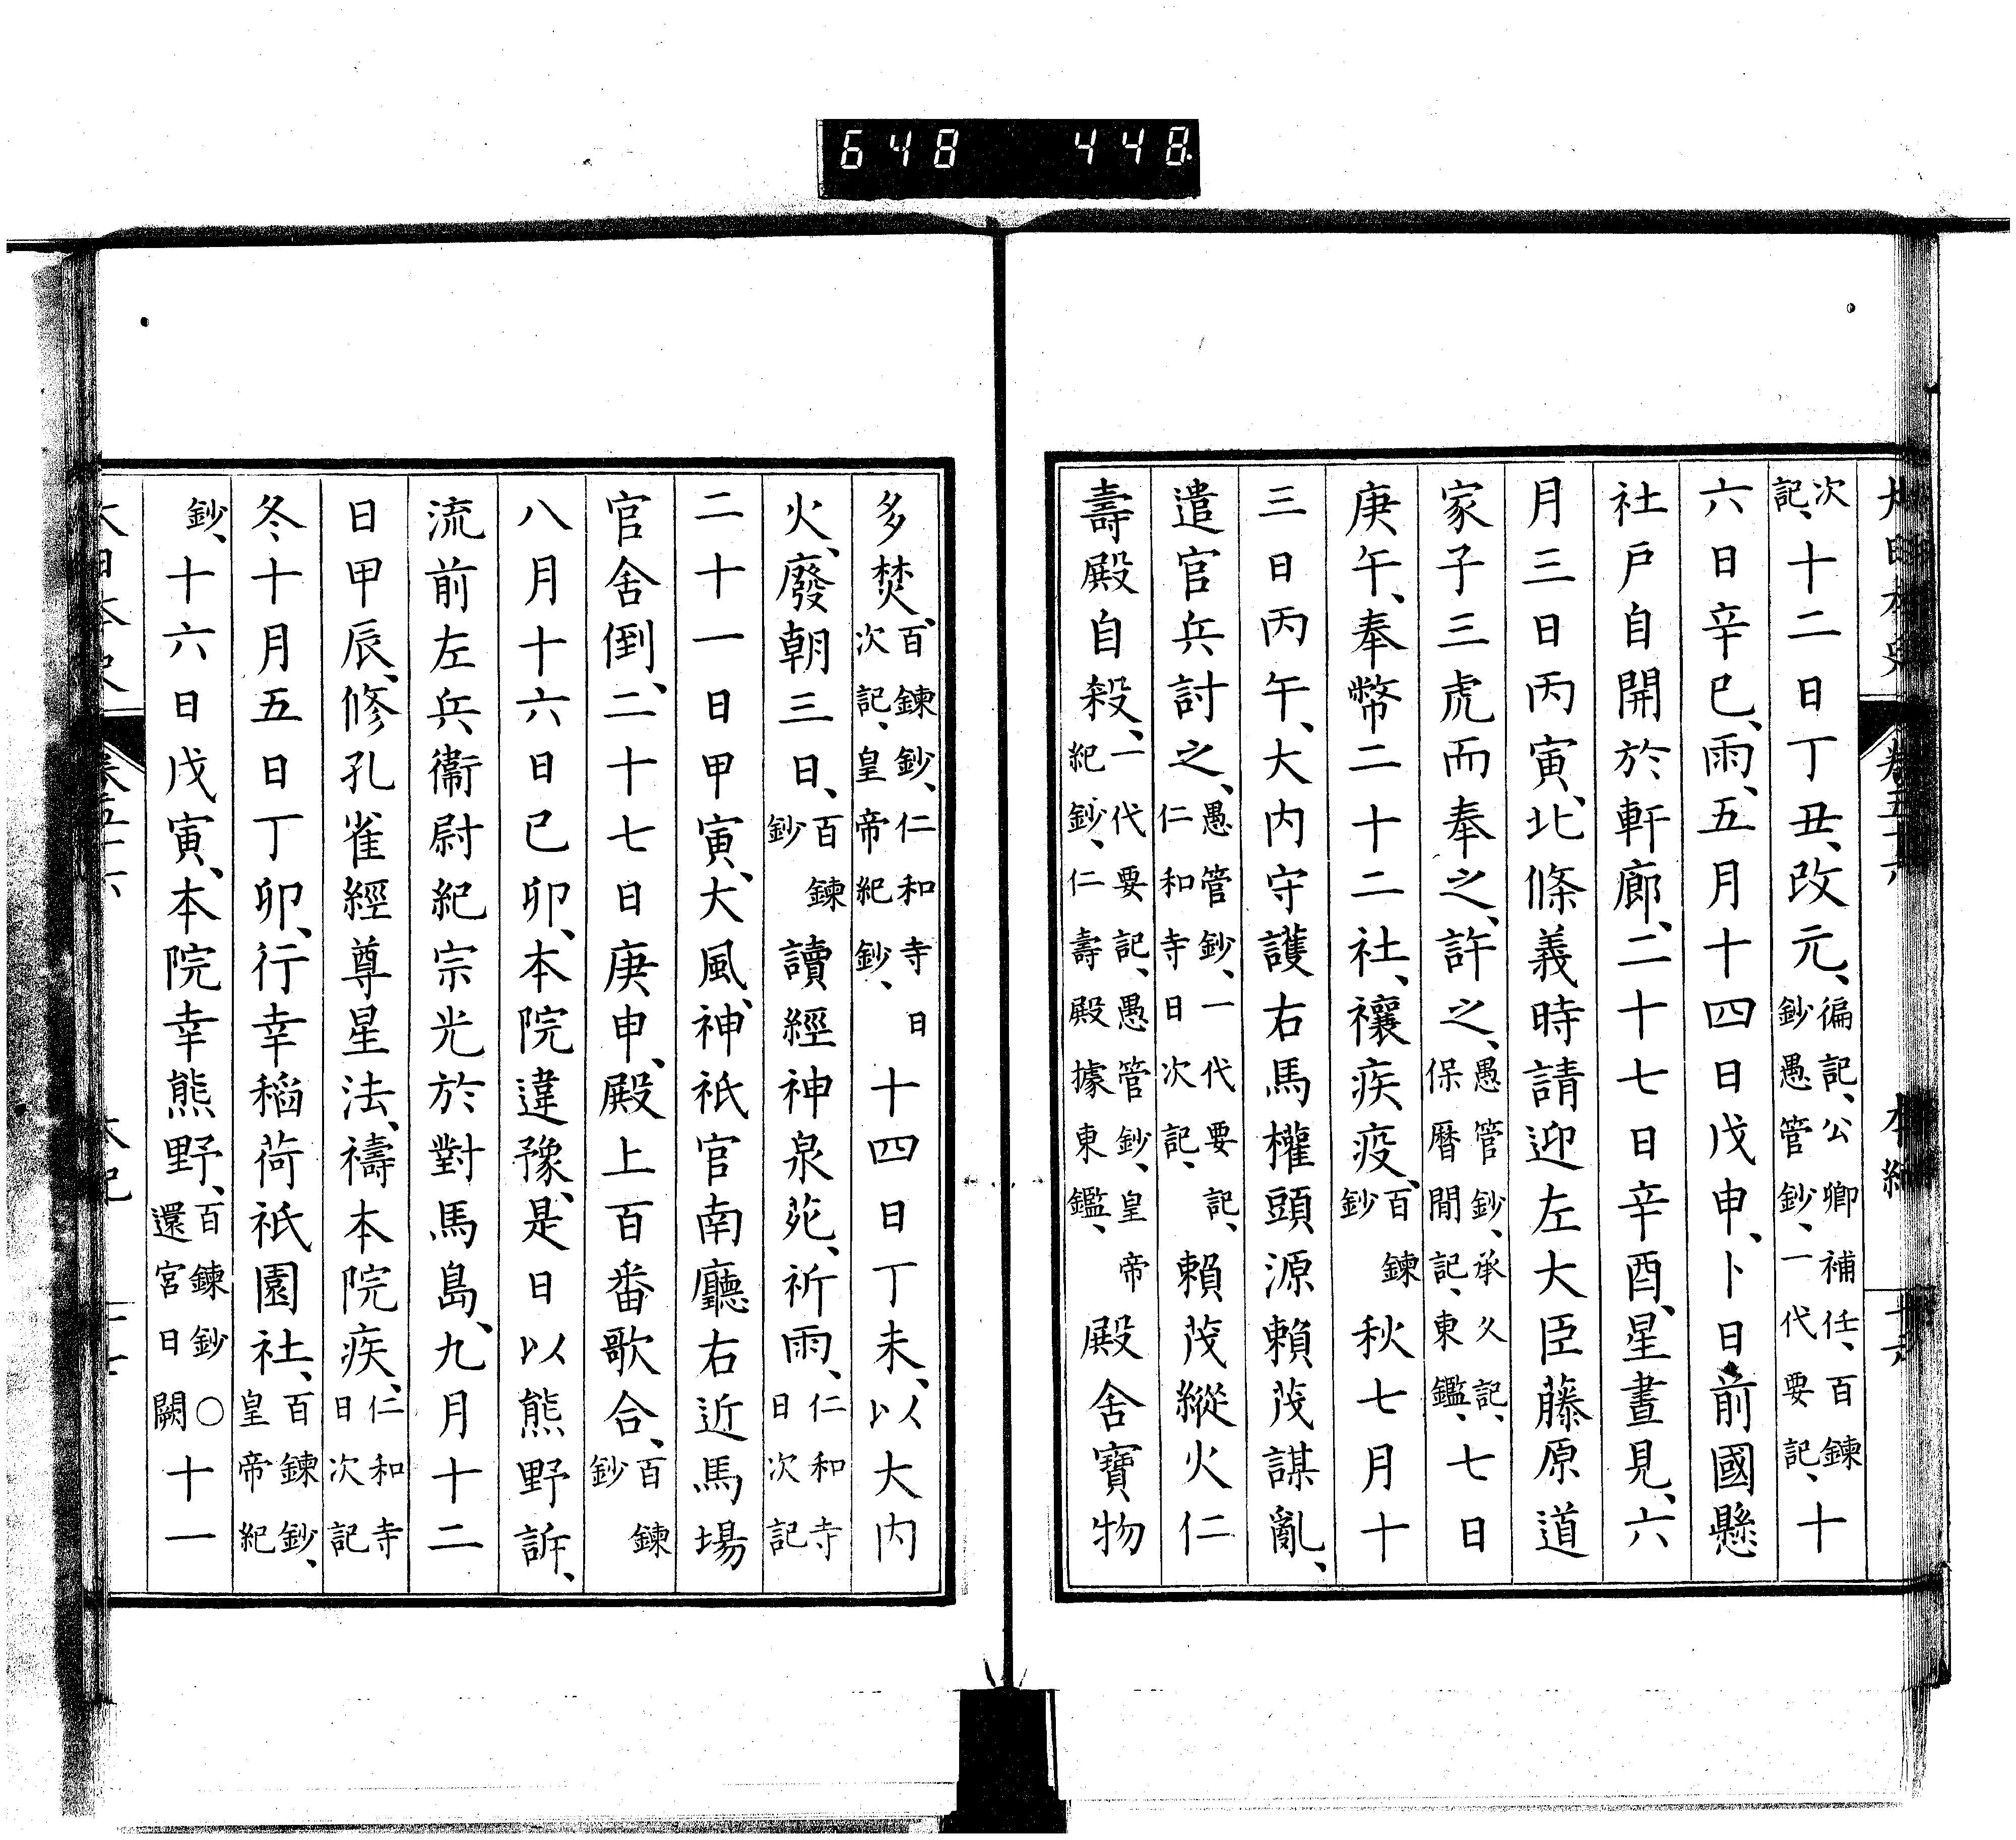 648 448
次記、十二日丁丑、改元、徧記、公卿補任、百鍊鈔愚管鈔、一代要記、十
六日辛巳、雨、五月十四日戊申、卜日前國懸
社戸自開於軒廊、二十七日辛酉、星晝見、六
月三日丙寅、北條義時請迎左大臣藤原道
家子三虎而奉之、許之、愚管鈔、承久記、保曆間記、東鑑、七日
庚午、奉幣二十二社、禳疾疫、百鍊鈔秋七月十
三日丙午、大内守護右馬權頭源賴茂謀亂、
遣官兵討之、愚管鈔、一代要記、仁和寺日次記、賴茂縱火仁
壽殿自殺、一代要記、愚管鈔、皇帝紀鈔、仁壽殿據東鑑、殿舍寶物
多焚、百鍊鈔、仁和寺日次記、皇帝紀鈔、十四日丁未、以大内
火、廢朝三日、百鍊鈔讀經神泉苑、祈雨、仁和寺日次記
二十一日甲寅、大風、神祇官南廳右近馬場
官舍倒、二十七日庚申、殿上百番歌合、百鍊鈔
八月十六日己卯、本院違豫、是日以熊野訴、
流前左兵衞尉紀宗光於對馬島、九月十二
日甲辰、修孔雀經尊星法、禱本院疾、仁和寺日次記
冬十月五日丁卯、行幸稻荷祇園社、百鍊鈔、皇帝紀
鈔、十六日戊寅、本院幸熊野、百鍊鈔〇還宮日闕十一